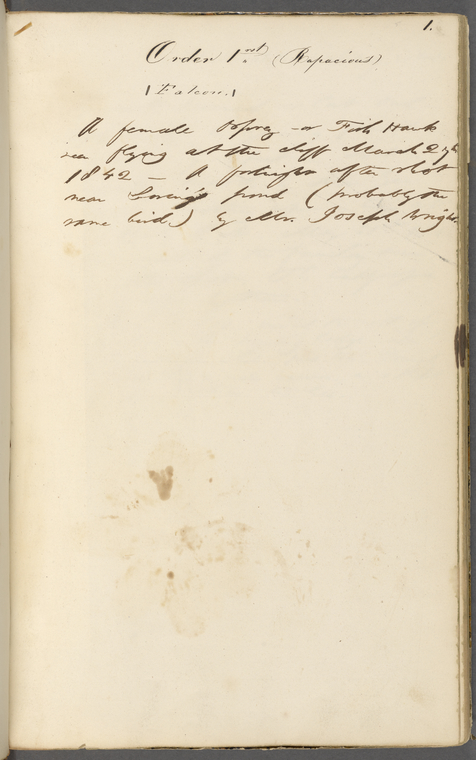 1.
Order 1st (Rapacious)
Falcon.
A female Osprey - or Fish Hawk
seen flying at the cliff March 29th
1842 - A fortnight after shot
near Goring's pond (probably the
same bird) by Mr. Joseph Wright